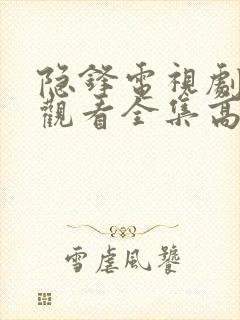 隐鋒電視劇
觀看全集高
雪虐風饕